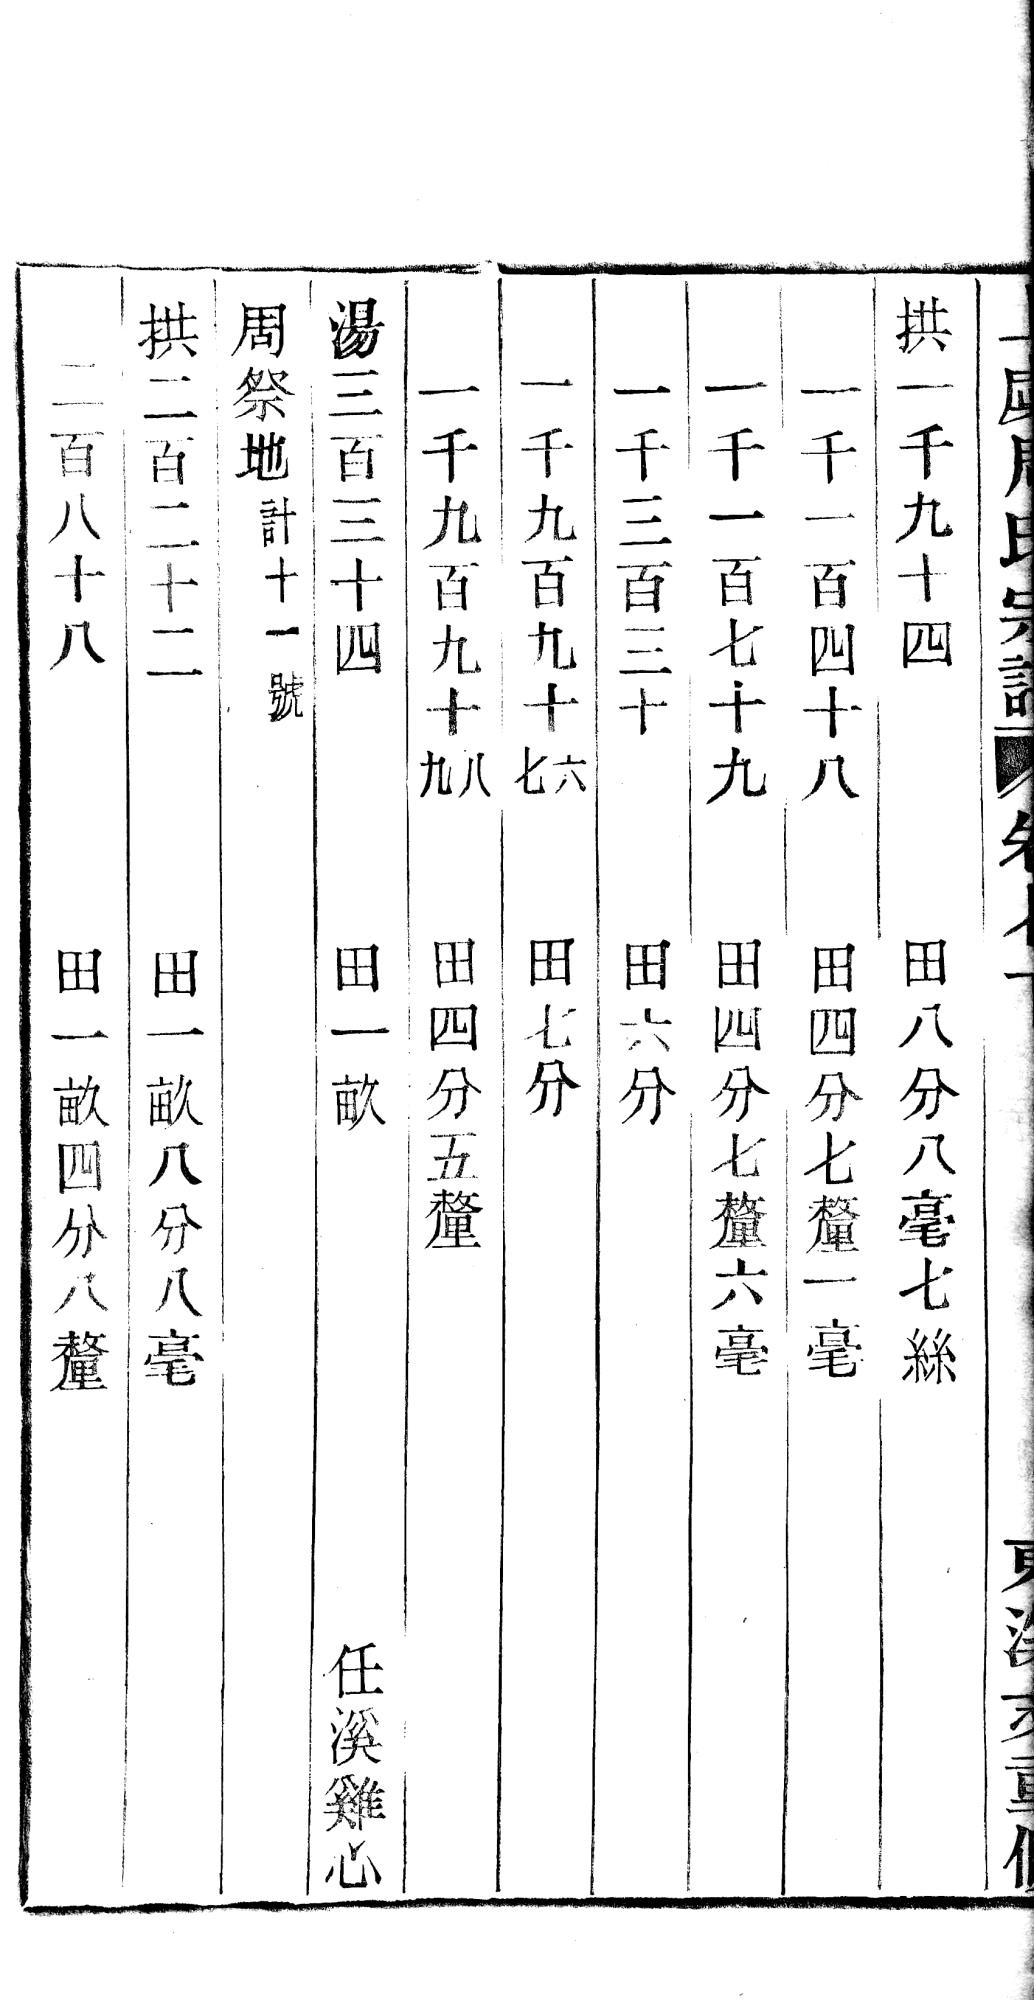 周氏宗譜 卷
重修
拱一千九十四 田八分八毫七絲
一千一百四十八 田四分七釐一毫
一千一百七十九 田四分七釐六毫
一千三百三十 田六分
一千九百九十六七 田七分
一千九百九十八九 田四分五釐
湯三百三十四 田一畝 任溪雞心
周祭地計十一號
拱二百二十二 田一畝八分八毫
二百八十八 田一畝四分八釐